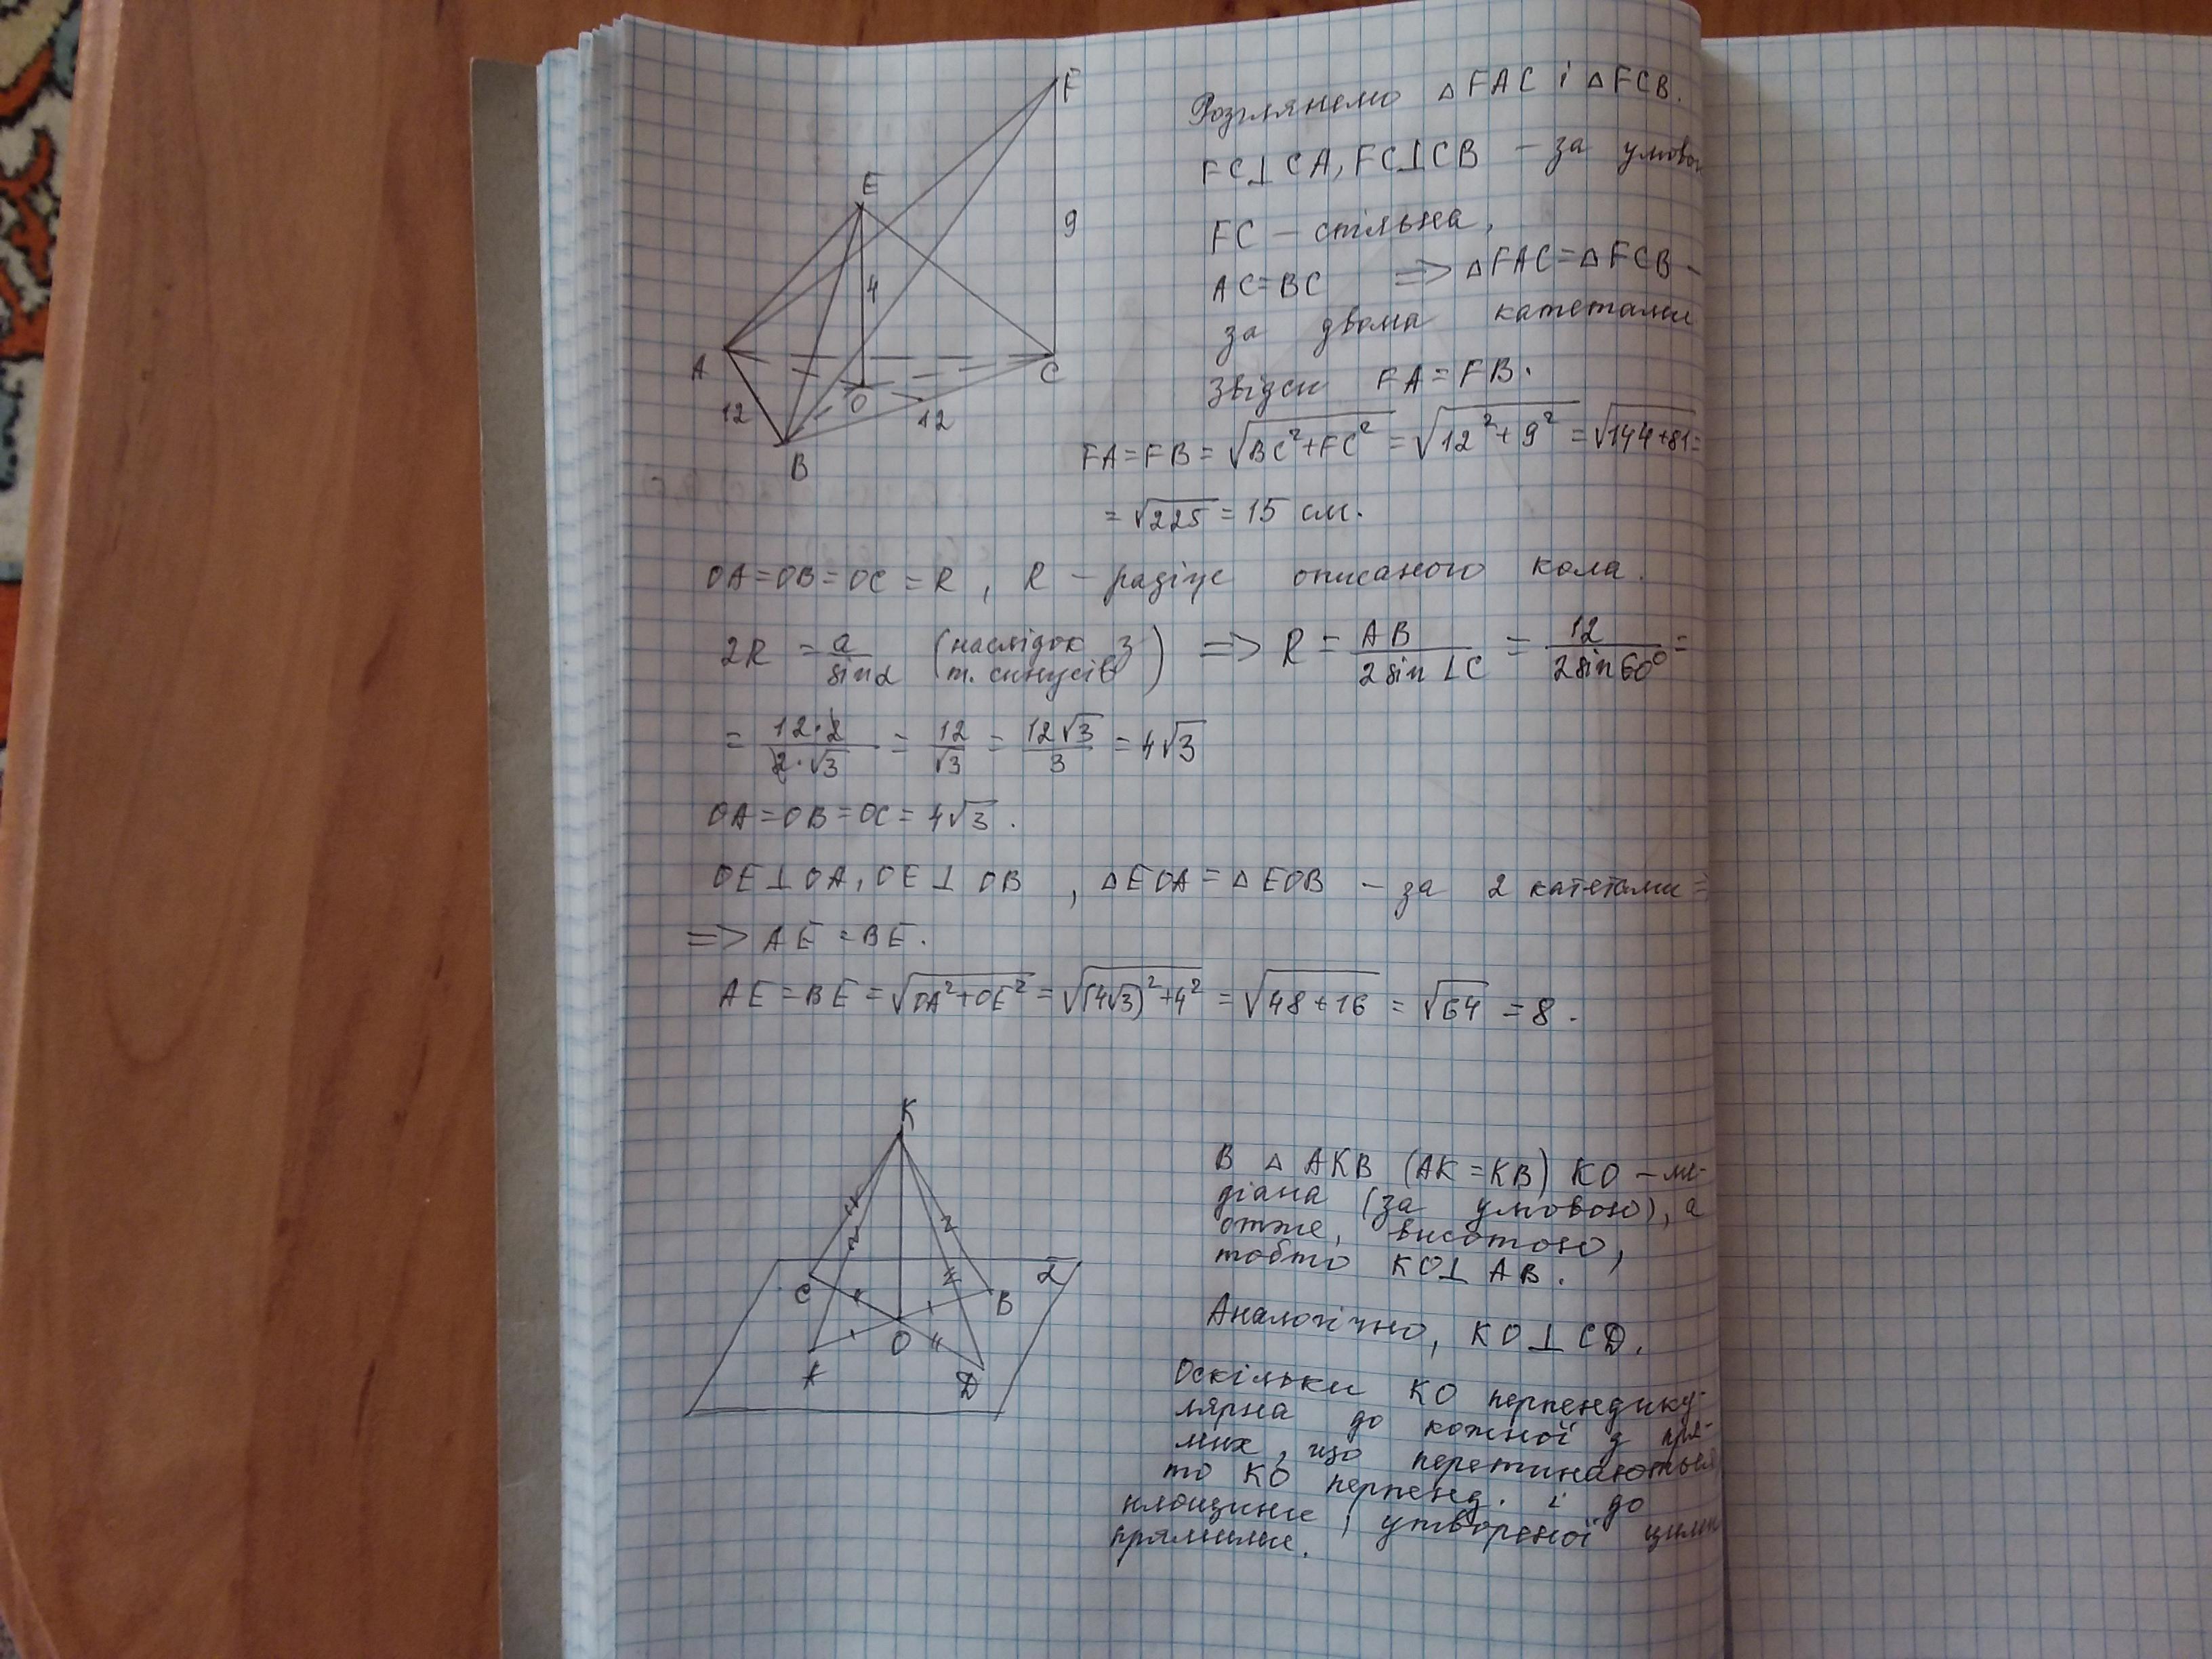 F
E
9
4
A
O
C
12
12
B
Розглянемо △FAC і △FCB.
FC⊥CA, FC⊥CB – за умовою
FC – спільна,
AC=BC => △FAC=△FCB –
за двома катетами
Звідси FA=FB.
FA=FB=√(BC²+FC²)=√(12²+9²)=√(144+81)=
=√225=15 см.
OA=OB=OC=R, R – радіус описаного кола.
2R = a/sinα (наслідок з т. синусів) => R = AB/(2sin∠C) = 12/(2sin60°) =
= (12·2)/(2·√3) = 12/√3 = 12√3/3 = 4√3
OA=OB=OC=4√3.
OE⊥OA, OE⊥OB, △EOA=△EOB – за 2 катетами =>
=> AE=BE.
AE=BE=√(OA²+OE²)=√((4√3)²+4²)=√(48+16)=√64=8.
K
C
B
α
O
A
D
В △AKB (AK=KB) KO – ме-
діана (за умовою), а
отже, висотою,
тобто KO⊥AB.
Аналогічно, KO⊥CD.
Оскільки KO перпендику-
лярна до кожної з пря-
мих, що перетинаються
то KO перпенд. і до
площини, утвореної цими
прямими.